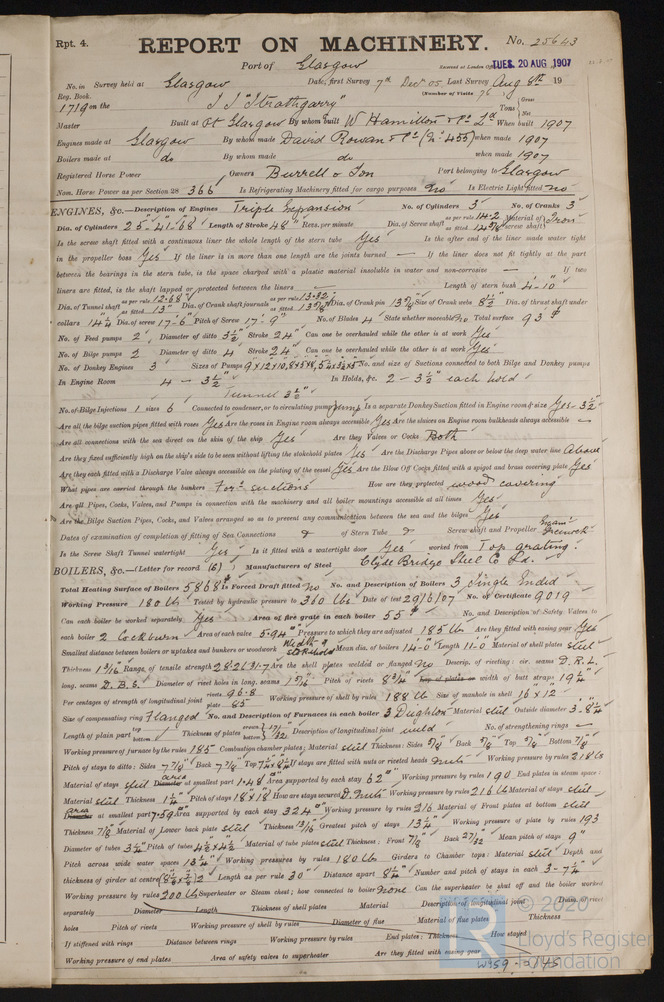 Rpt. 4. REPORT ON MACHINERY. No. 25643
Port of Glasgow Received at London Office TUES. 20 AUG 1907
No. in Survey held at Glasgow Date, first Survey 7th Decr 05 Last Survey Aug 8th 19
Reg. Book. (Number of Visits 76
1719 on the S S "Strathgarry" Tons Gross Net
Master Built at Pt Glasgow By whom built W Hamilton & Co Ld When built 1907
Engines made at Glasgow By whom made David Rowan & Co (No 455) when made 1907
Boilers made at do By whom made do when made 1907
Registered Horse Power Owners Burrell & Son Port belonging to Glasgow
Nom. Horse Power as per Section 28 366 Is Refrigerating Machinery fitted for cargo purposes No Is Electric Light fitted no
ENGINES, &c.—Description of Engines Triple Expansion No. of Cylinders 3 No. of Cranks 3
Dia. of Cylinders 25"-41"-68" Length of Stroke 48" Revs. per minute Dia. of Screw shaft as per rule 14.2 as fitted 14 7/8 Material of screw shaft Iron
Is the screw shaft fitted with a continuous liner the whole length of the stern tube Yes Is the after end of the liner made water tight
in the propeller boss Yes If the liner is in more than one length are the joints burned — If the liner does not fit tightly at the part
between the bearings in the stern tube, is the space charged with a plastic material insoluble in water and non-corrosive — If two
liners are fitted, is the shaft lapped or protected between the liners — Length of stern bush 4-10"
Dia. of Tunnel shaft as per rule 12.68" as fitted 13" Dia. of Crank shaft journals as per rule 13.32" as fitted 13 7/8 Dia. of Crank pin 13 7/8 Size of Crank webs 8 1/2 Dia. of thrust shaft under
collars 14 1/4 Dia. of screw 17-6" Pitch of Screw 17-9" No. of Blades 4 State whether moveable No Total surface 93
No. of Feed pumps 2 Diameter of ditto 3 1/2 Stroke 24 Can one be overhauled while the other is at work Yes
No. of Bilge pumps 2 Diameter of ditto 4 Stroke 24 Can one be overhauled while the other is at work Yes
No. of Donkey Engines 3 Sizes of Pumps No. and size of Suctions connected to both Bilge and Donkey pumps
In Engine Room 4 - 3 1/2" In Holds, &c. 2 - 3 1/2" each hold
Tunnel 3 1/2"
No. of Bilge Injections 1 sizes 6 Connected to condenser, or to circulating pump Is a separate Donkey Suction fitted in Engine room & size Yes - 3 1/2
Are all the bilge suction pipes fitted with roses Yes Are the roses in Engine room always accessible Yes Are the sluices on Engine room bulkheads always accessible —
Are all connections with the sea direct on the skin of the ship Yes Are they Valves or Cocks Both
Are they fixed sufficiently high on the ship's side to be seen without lifting the stokehold plates Yes Are the Discharge Pipes above or below the deep water line Above
Are they each fitted with a Discharge Valve always accessible on the plating of the vessel Yes Are the Blow Off Cocks fitted with a spigot and brass covering plate Yes
What pipes are carried through the bunkers Ford suctions How are they protected wood covering
Are all Pipes, Cocks, Valves, and Pumps in connection with the machinery and all boiler mountings accessible at all times Yes
Are the Bilge Suction Pipes, Cocks, and Valves arranged so as to prevent any communication between the sea and the bilges Yes
Dates of examination of completion of fitting of Sea Connections of Stern Tube Screw shaft and Propeller Greenock
Is the Screw Shaft Tunnel watertight Yes Is it fitted with a watertight door Yes worked from Top grating.
BOILERS, &c.—(Letter for record (S) Manufacturers of Steel Clyde Bridge Steel Co Ld.
Total Heating Surface of Boilers 5868 Is Forced Draft fitted no No. and Description of Boilers 3 Single Ended
Working Pressure 180 lbs Tested by hydraulic pressure to 360 lbs Date of test 29/6/07 No. of Certificate 9019
Can each boiler be worked separately Yes Area of fire grate in each boiler 55 No. and Description of Safety Valves to
each boiler 2 Cockburn Area of each valve 5.94 Pressure to which they are adjusted 185 lbs Are they fitted with easing gear Yes
Smallest distance between boilers or uptakes and bunkers or woodwork Width of stokehold Mean dia. of boilers 14-0 Length 11-0 Material of shell plates steel
Thickness 1 3/16 Range of tensile strength 28.2/31.7 Are the shell plates welded or flanged No Descrip. of riveting: cir. seams D.R.L.
long. seams D.B.S. Diameter of rivet holes in long. seams 1 3/16 Pitch of rivets 8 3/4 Lap of plates or width of butt straps 19 1/4
Per centages of strength of longitudinal joint rivets 96.8 plate 85 Working pressure of shell by rules 188 lbs Size of manhole in shell 16" x 12"
Size of compensating ring Flanged No. and Description of Furnaces in each boiler 3 Deighton Material steel Outside diameter 3-8 1/4
Length of plain part top bottom Thickness of plates crown bottom 17/32 Description of longitudinal joint weld No. of strengthening rings —
Working pressure of furnace by the rules 185 Combustion chamber plates: Material steel Thickness: Sides 5/8 Back 5/8 Top 5/8 Bottom 7/8
Pitch of stays to ditto: Sides 7 7/8 Back 7 7/8 Top If stays are fitted with nuts or riveted heads Nuts Working pressure by rules 218 lbs
Material of stays steel area Diameter at smallest part 1.48 Area supported by each stay 62 Working pressure by rules 190 End plates in steam space:
Material steel Thickness 1 1/4 Pitch of stays 18 x 18 How are stays secured D. Nuts Working pressure by rules 216 lbs Material of stays steel
area Diameter at smallest part 7.59 Area supported by each stay 324 Working pressure by rules 216 Material of Front plates at bottom steel
Thickness 7/8 Material of Lower back plate steel Thickness 13/16 Greatest pitch of stays 13 1/4 Working pressure of plate by rules 193
Diameter of tubes 3 1/4 Pitch of tubes 4 1/2 x 4 1/2 Material of tube plates steel Thickness: Front 7/8 Back 27/32 Mean pitch of stays 9"
Pitch across wide water spaces 13 1/4 Working pressures by rules 180 lbs Girders to Chamber tops: Material steel Depth and
thickness of girder at centre Length as per rule 30" Distance apart 8 1/4" Number and pitch of stays in each 3 - 7 1/4
Working pressure by rules 200 lbs Superheater or Steam chest; how connected to boiler None Can the superheater be shut off and the boiler worked
separately Diameter Length Thickness of shell plates Material Description of longitudinal joint Diam. of rivet
holes Pitch of rivets Working pressure of shell by rules Diameter of flue Material of flue plates Thickness
If stiffened with rings Distance between rings Working pressure by rules End plates: Thickness How stayed
Working pressure of end plates Area of safety valves to superheater Are they fitted with easing gear
© 2020
Lloyd's Register
Foundation
W459-0145